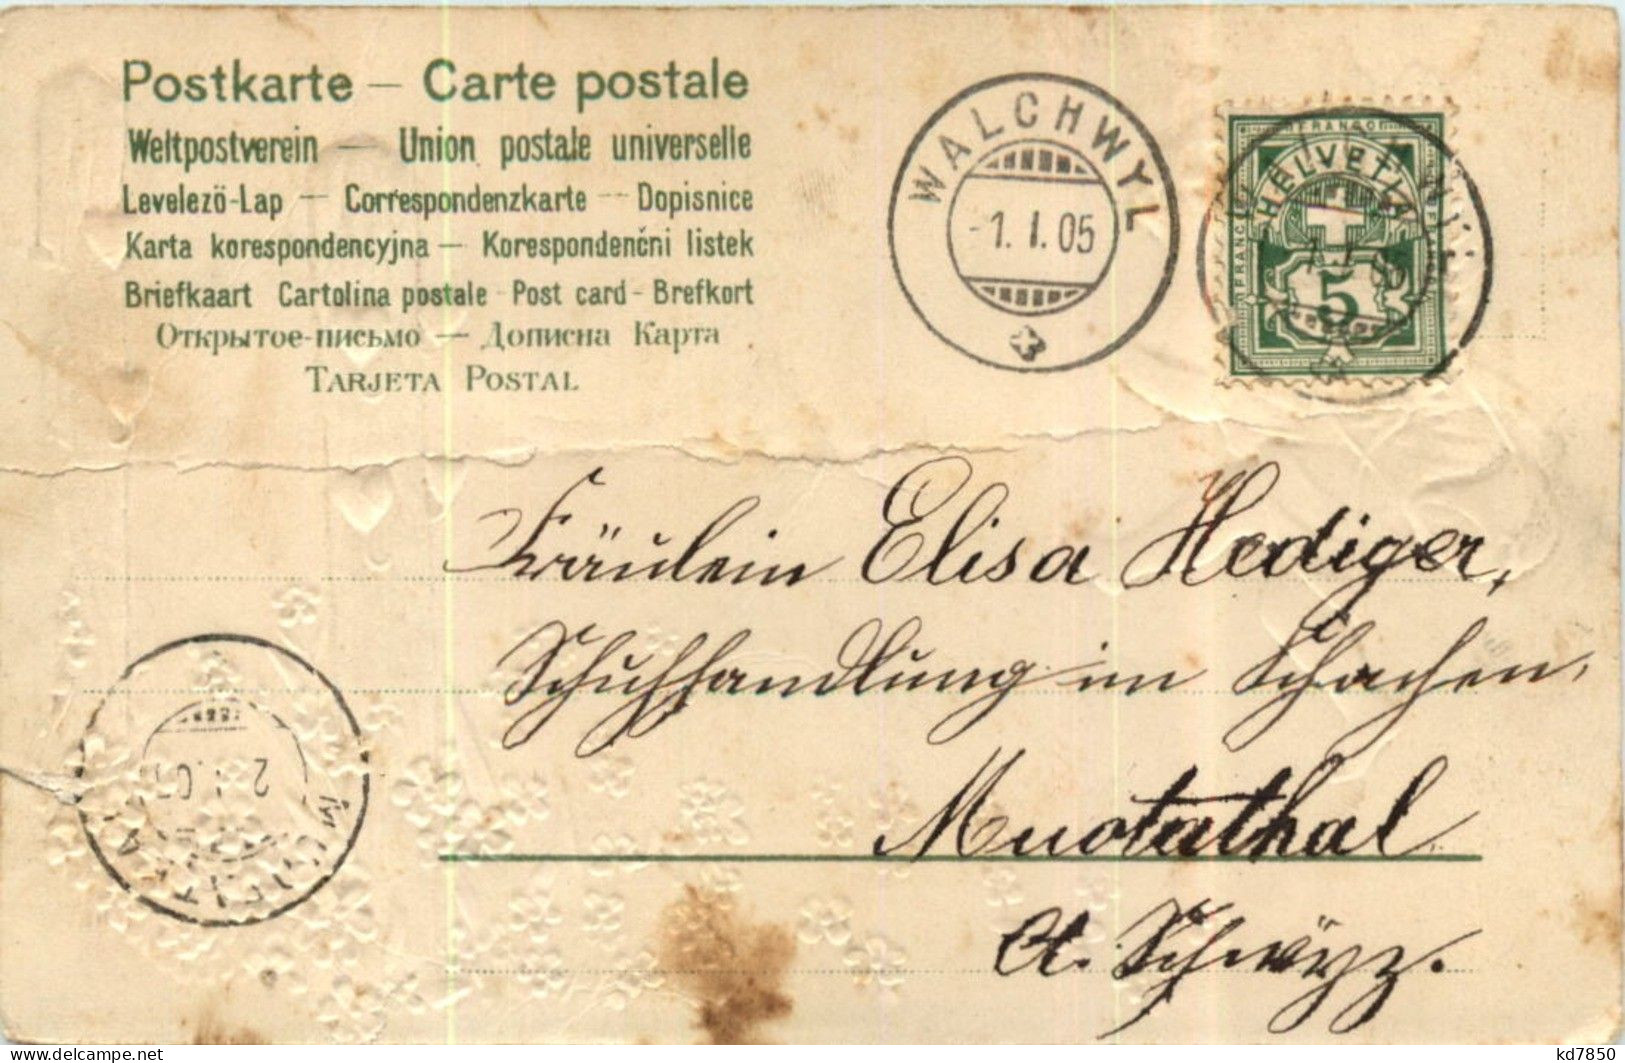 Postkarte – Carte postale
Weltpostverein — Union postale universelle
Levelező-Lap — Correspondenzkarte — Dopisnice
Karta korespondencyjna — Korespondenčni listek
Briefkaart Cartolina postale - Post card - Brefkort
Открытое-письмо — Дописна Карта
TARJETA POSTAL
WALCHWYL
-1. I. 05
FRANCO
HELVETIA
5
Fräulein Elisa Hediger,
Schuhhandlung im Schachen,
Muotathal
Ct. Schwÿz.
kd7850